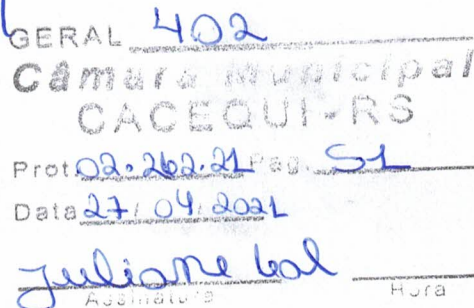 GERAL 402
Câmara Municipal
CACEQUI-RS
Prot. 02.262.21 Pag. 51
Data 27/04/2021
Juliane
Assinatura Hora